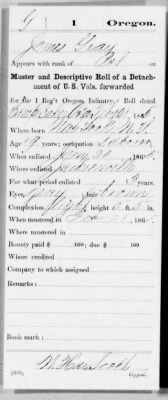 G 1 Oregon.
James Gray
Appears with rank of Pvt
Muster and Descriptive Roll of a Detach-
ment of U. S. Vols. forwarded
for the 1 Reg't Oregon Infantry. Roll dated
186
Where born New York N.Y.
Age 19 years; occupation Laborer
When enlisted Jany 30, 186
Where enlisted Jacksonville
For what period enlisted 3 years.
Eyes Gray; hair brown
Complexion light; height 5 ft. 5 in.
When mustered in 186
Where mustered in
Bounty paid $ 100; due $ 100
Where credited
Company to which assigned
Remarks:
Book mark:
Copyist.